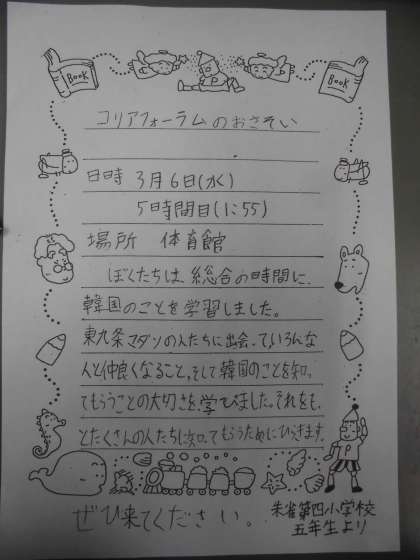 BOOK
BOOK
P
コリアフォーラムのおさそい
日時 3月6日(水)
5時間目(1:55)
場所 体育館
ぼくたちは、総合の時間に、
韓国のことを学習しました。
東九条マダンの人たちに出会っていろんな
人と仲良くなること、そして韓国のことを知っ
てもらうことの大切さを、学びました。それをも、
とたくさんの人たちに知ってもらうためにひらきます。
P
P
ぜひ来てください。
朱雀第四小学校
五年生より